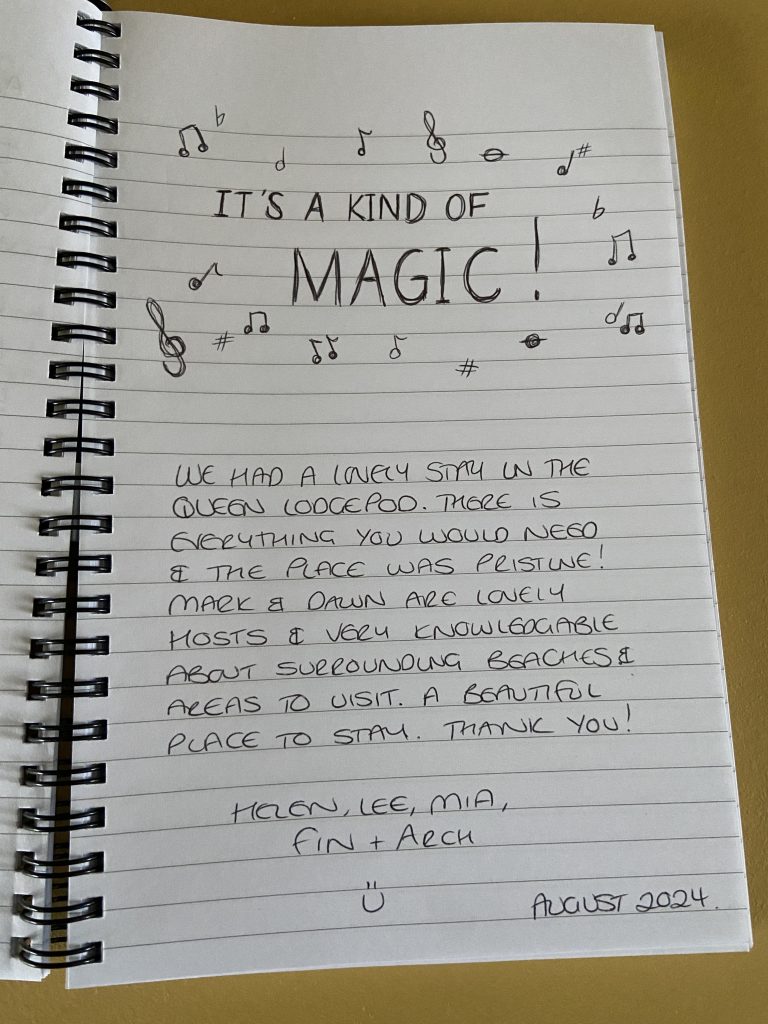 IT'S A KIND OF
MAGIC!
WE HAD A LOVELY STAY IN THE
QUEEN LODGEPOD. THERE IS
EVERYTHING YOU WOULD NEED
& THE PLACE WAS PRISTINE!
MARK & DAWN ARE LOVELY
HOSTS & VERY KNOWLEDGABLE
ABOUT SURROUNDING BEACHES &
AREAS TO VISIT. A BEAUTIFUL
PLACE TO STAY. THANK YOU!
HELEN, LEE, MIA,
FIN + ARCH
AUGUST 2024.